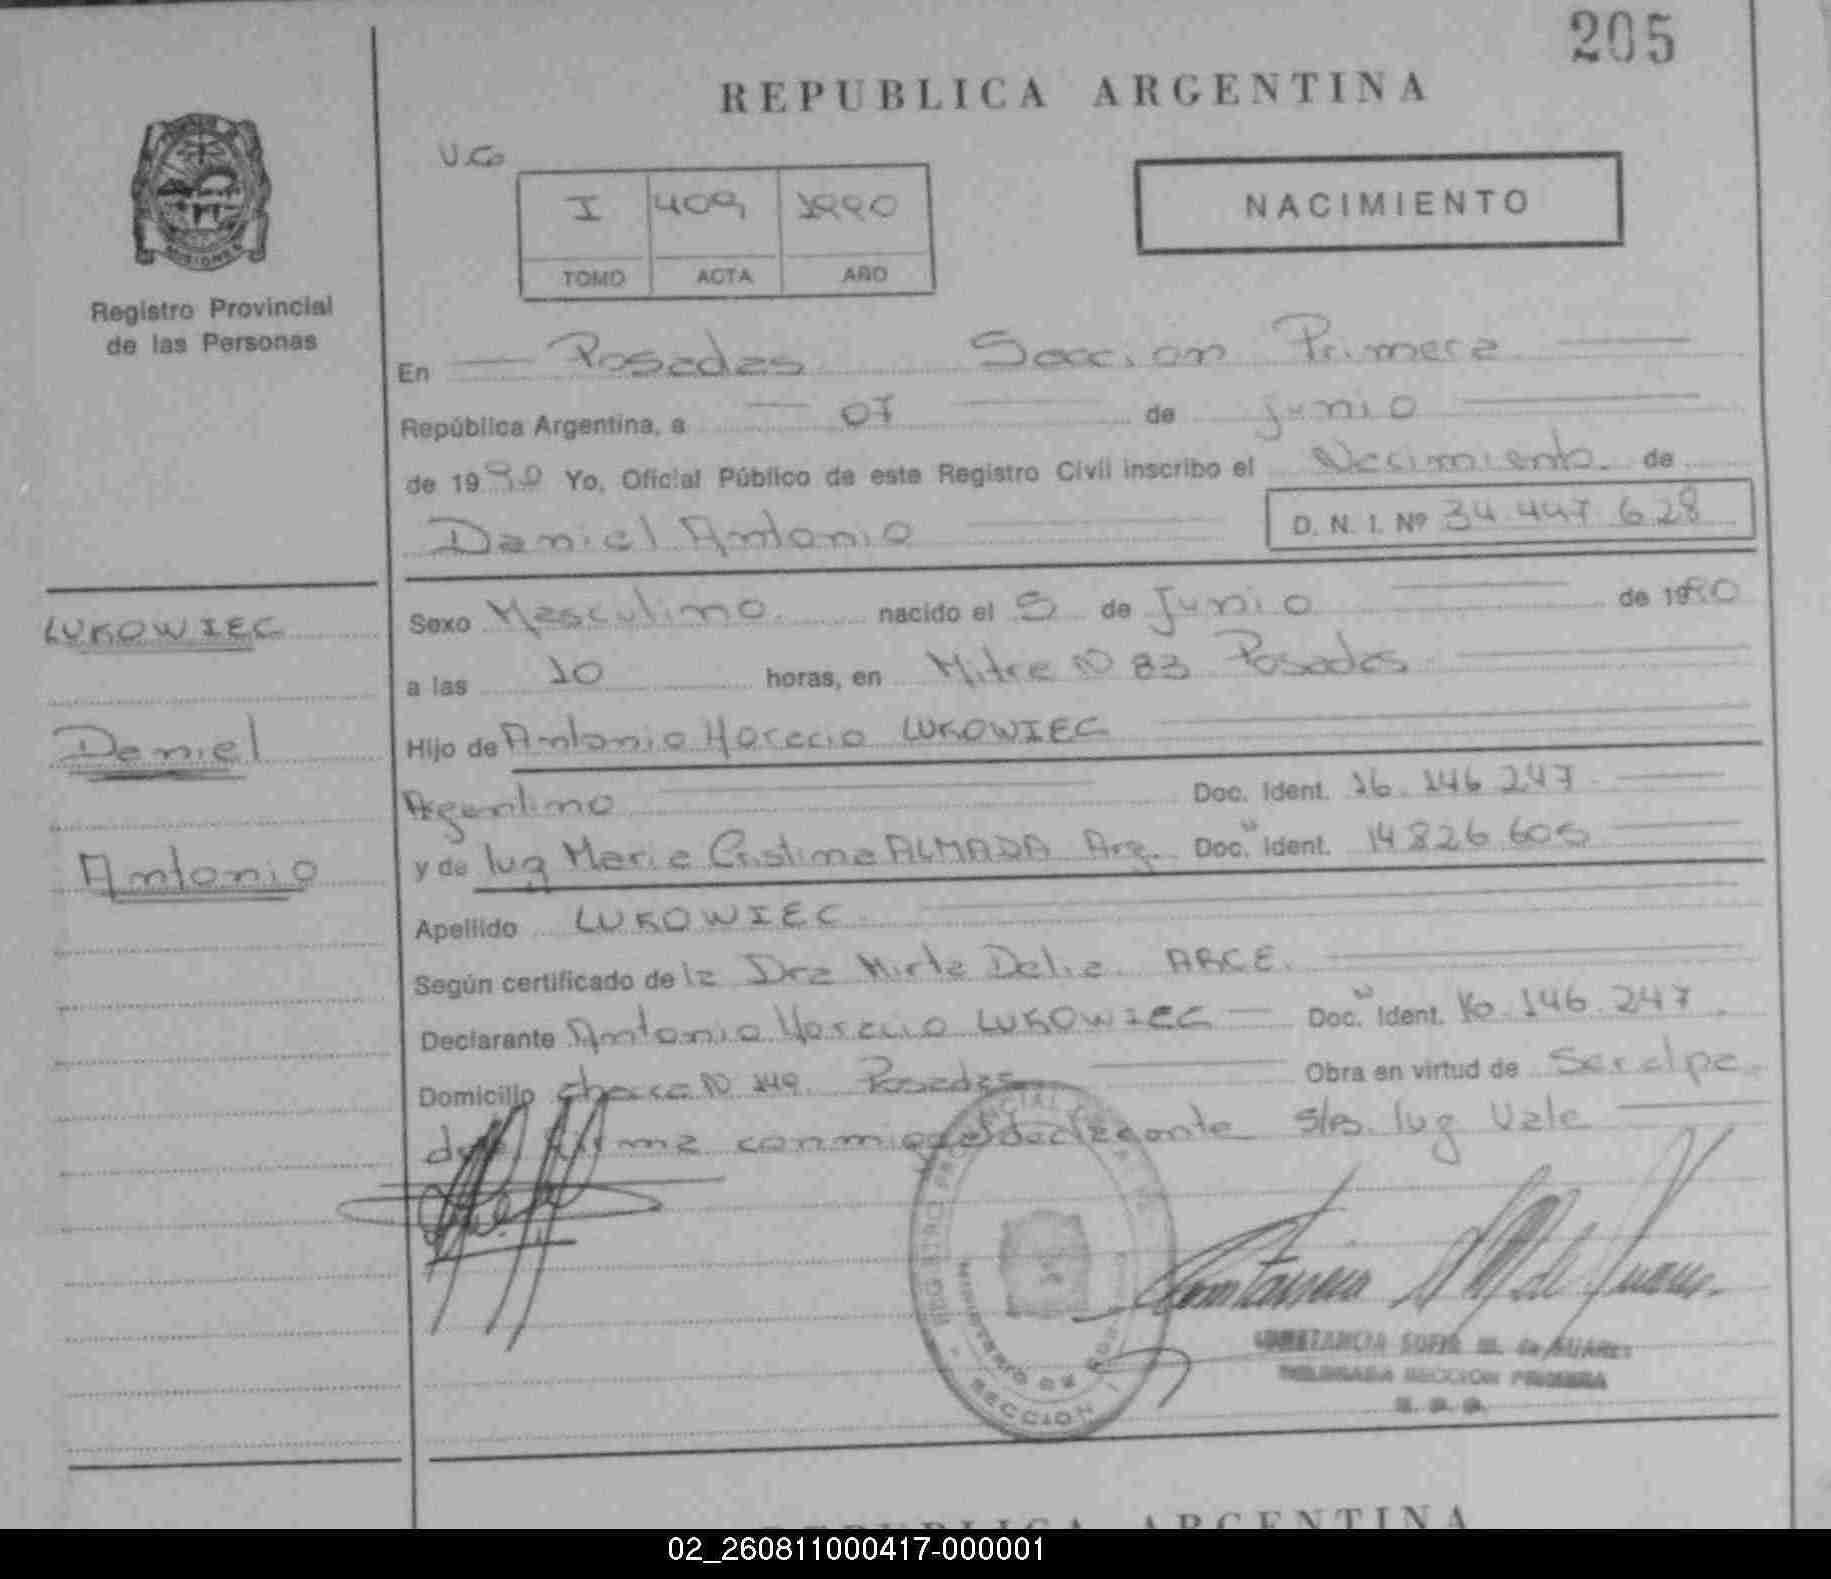 205
REPUBLICA ARGENTINA
NACIMIENTO
I 409 1990
TOMO ACTA AÑO
MISIONES
Registro Provincial
de las Personas
En Posadas Seccion Primera
República Argentina, a 07 de junio
de 1990 Yo, Oficial Público de este Registro Civil inscribo el Nacimiento de
Daniel Antonio D. N. I. Nº 34.447.628
LUKOWIEC
Daniel
Antonio
Sexo Masculino nacido el 5 de Junio de 1990
a las 10 horas, en Mitre N 83 Posadas
Hijo de Antonio Horacio LUKOWIEC
Argentino Doc. Ident. 16.146.247
y de lug Maria Cristina ALMADA Arg. Doc. Ident. 14.826.605
Apellido LUKOWIEC
Según certificado de la Dra Mirta Delia ARCE.
Declarante Antonio Horacio LUKOWIEC Doc. Ident. 16.146.247
Domicilio chacra N 149. Posadas Obra en virtud de Ser el pa
dre firma conmigo el declarante S/R. lug Vale
CONSTANCIA SOFIA M. de SUAREZ
DELEGADA SECCION PRIMERA
REPUBLICA ARGENTINA
02_260811000417-000001